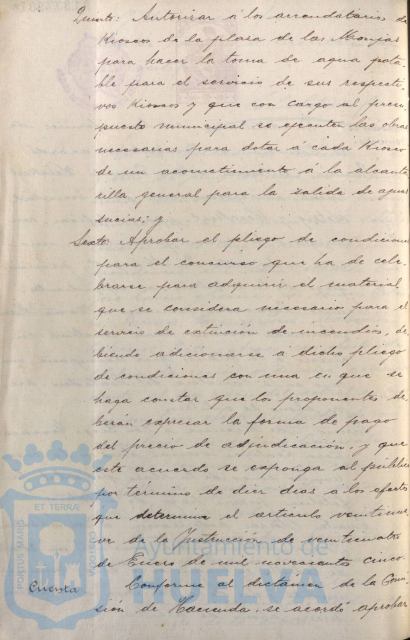 Quinto: Autorizar á los arrendatarios de
Kioscos de la plaza de las Monjas
para hacer la toma de agua pota-
ble para el servicio de sus respecti-
vos Kioscos y que con cargo al presu-
puesto municipal se ejecuten las obras
necesarias para dotar á cada Kiosco
de un acometimiento á la alcanta-
rilla general para la salida de aguas
sucias; y
Sexto: Aprobar el pliego de condiciones
para el concurso que ha de cele-
brarse para adquirir el material
que se considera necesario para el
servicio de extinción de incendios, de-
biendo adicionarse a dicho pliego
de condiciones con una en que se
haga constar que los proponentes de-
berán expresar la forma de pago
del precio de adjudicación, y que
este acuerdo se exponga al público
por término de diez dias á los efectos
que determina el artículo veintinue-
ve de la Instrucción de veinticuatro
de Enero de mil novecientos cinco.
Cuenta
Conforme al dictámen de la Comi-
sión de Hacienda, se acordó aprobar
PORTUS MARIS ET TERRAE CUSTODIA
Ayuntamiento de
HUELVA